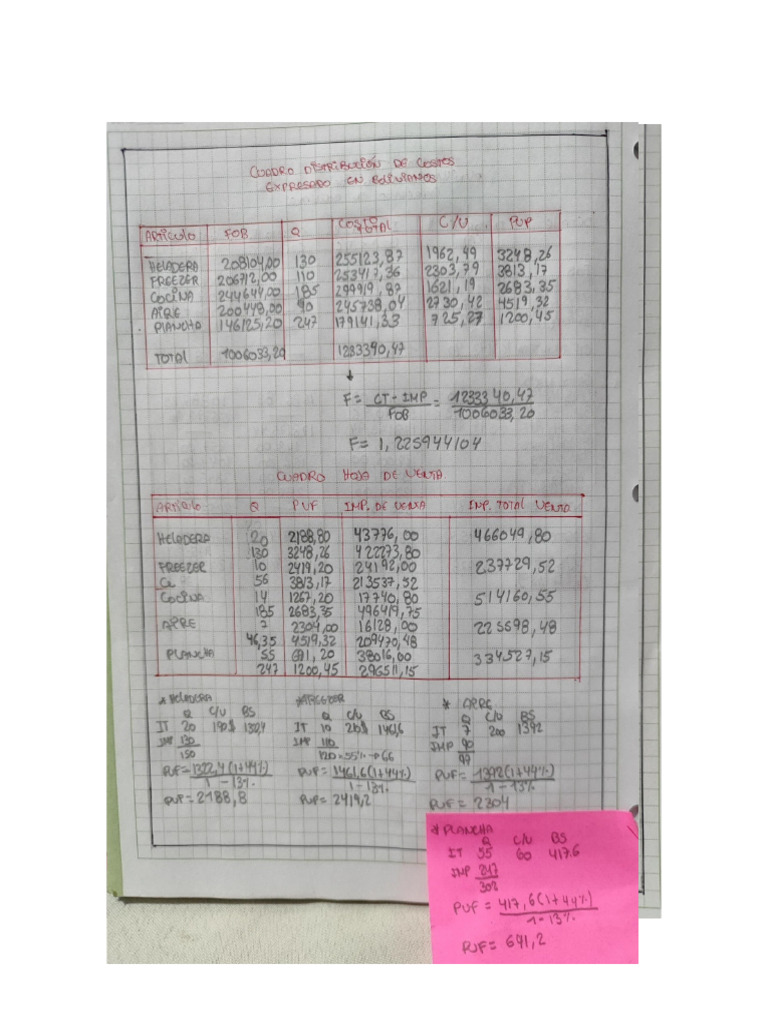 CUADRO DISTRIBUCIÓN DE COSTOS
EXPRESADO EN BOLIVIANOS
ARTICULO FOB Q COSTO TOTAL C/U PUP
HELADERA 208104,00 130 255123,87 1962,49 3248,26
FREEZER 206712,00 110 253417,36 2303,79 3813,17
COCINA 244644,00 185 299919,87 1621,19 2683,35
AIRE 200448,00 90 245738,04 2730,42 4519,32
PLANCHA 146125,20 247 179141,33 725,27 1200,45
TOTAL 1006033,20 1233340,47
F = CT - IMP / FOB = 1233340,47 / 1006033,20
F = 1,225944104
CUADRO HOJA DE VENTA.
ARTICULO Q PVF IMP. DE VENTA IMP. TOTAL VENTA
HELADERA 20 2188,80 43776,00 466049,80
130 3248,26 422273,80
FREEZER 10 2419,20 24192,00 237729,52
56 3813,17 213537,52
COCINA 14 1267,20 17740,80 514160,55
185 2683,35 496419,75
AIRE 7 2304,00 16128,00 225598,48
46,35 4519,32 209470,48
PLANCHA 55 691,20 38016,00 334527,15
247 1200,45 296511,15
* HELADERA
Q C/U BS
IT 20 190$ 1322,4
IMP 130
150
PUF = 1322,4(1+44%) / 1-13%
PUF = 2188,8
*FREEZER
Q C/U BS
IT 10 1461,6
IMP 110
120 x 55% → 66
PUF = 1461,6(1+44%) / 1-13%
PUF = 2419,2
* AIRE
Q C/U BS
IT 7 200 1392
IMP 90
97
PUF = 1392(1+44%) / 1-13%
PUF = 2304
* PLANCHA
Q C/U BS
IT 55 60 417.6
IMP 247
302
PUF = 417,6(1+44%) / 1-13%
PUF = 691,2